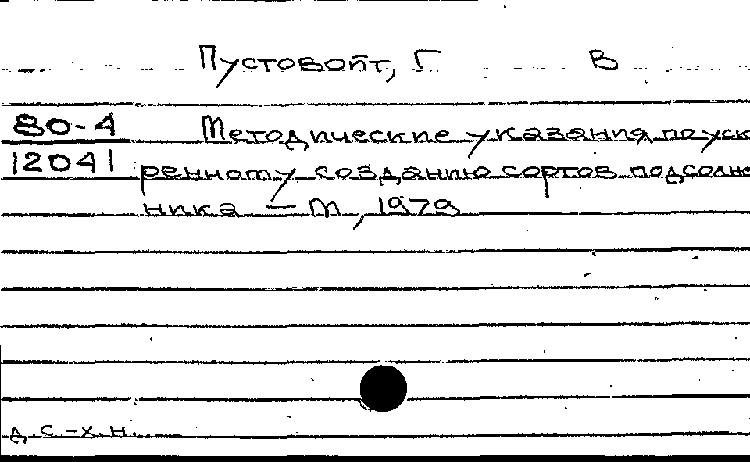 Пустовойт, Г В
80-4 Методические указания по уск
12041 ренному созданию сортов подсолне
чника — М, 1979
д. с.-х. н.